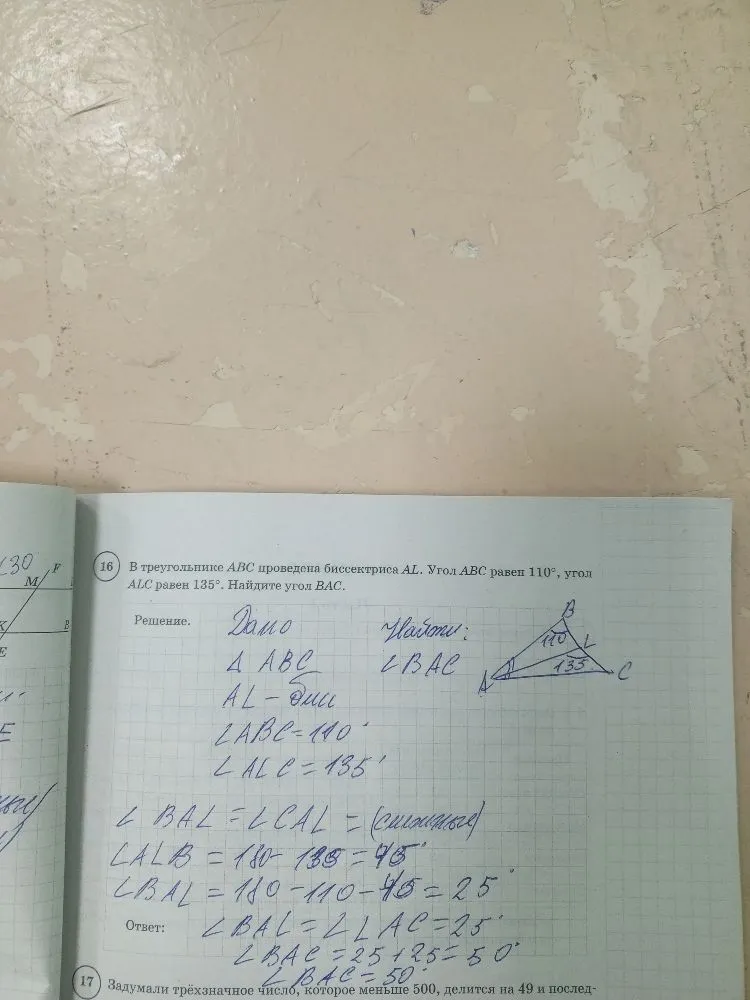 <30
M F
K B
E
16 В треугольнике ABC проведена биссектриса AL. Угол ABC равен 110°, угол
ALC равен 135°. Найдите угол BAC.
Решение.
Дано Найти:
Δ ABC ∠BAC
AL – бис
∠ABC = 110°
∠ALC = 135°
B
110
L
135
A C
∠ BAL = ∠CAL = (смежные)
∠ALB = 180 - 135 = 45°
∠BAL = 180 - 110 - 45 = 25°
Ответ: ∠BAL = ∠LAC = 25°
∠BAC = 25 + 25 = 50°
∠BAC = 50°
17 Задумали трёхзначное число, которое меньше 500, делится на 49 и послед-